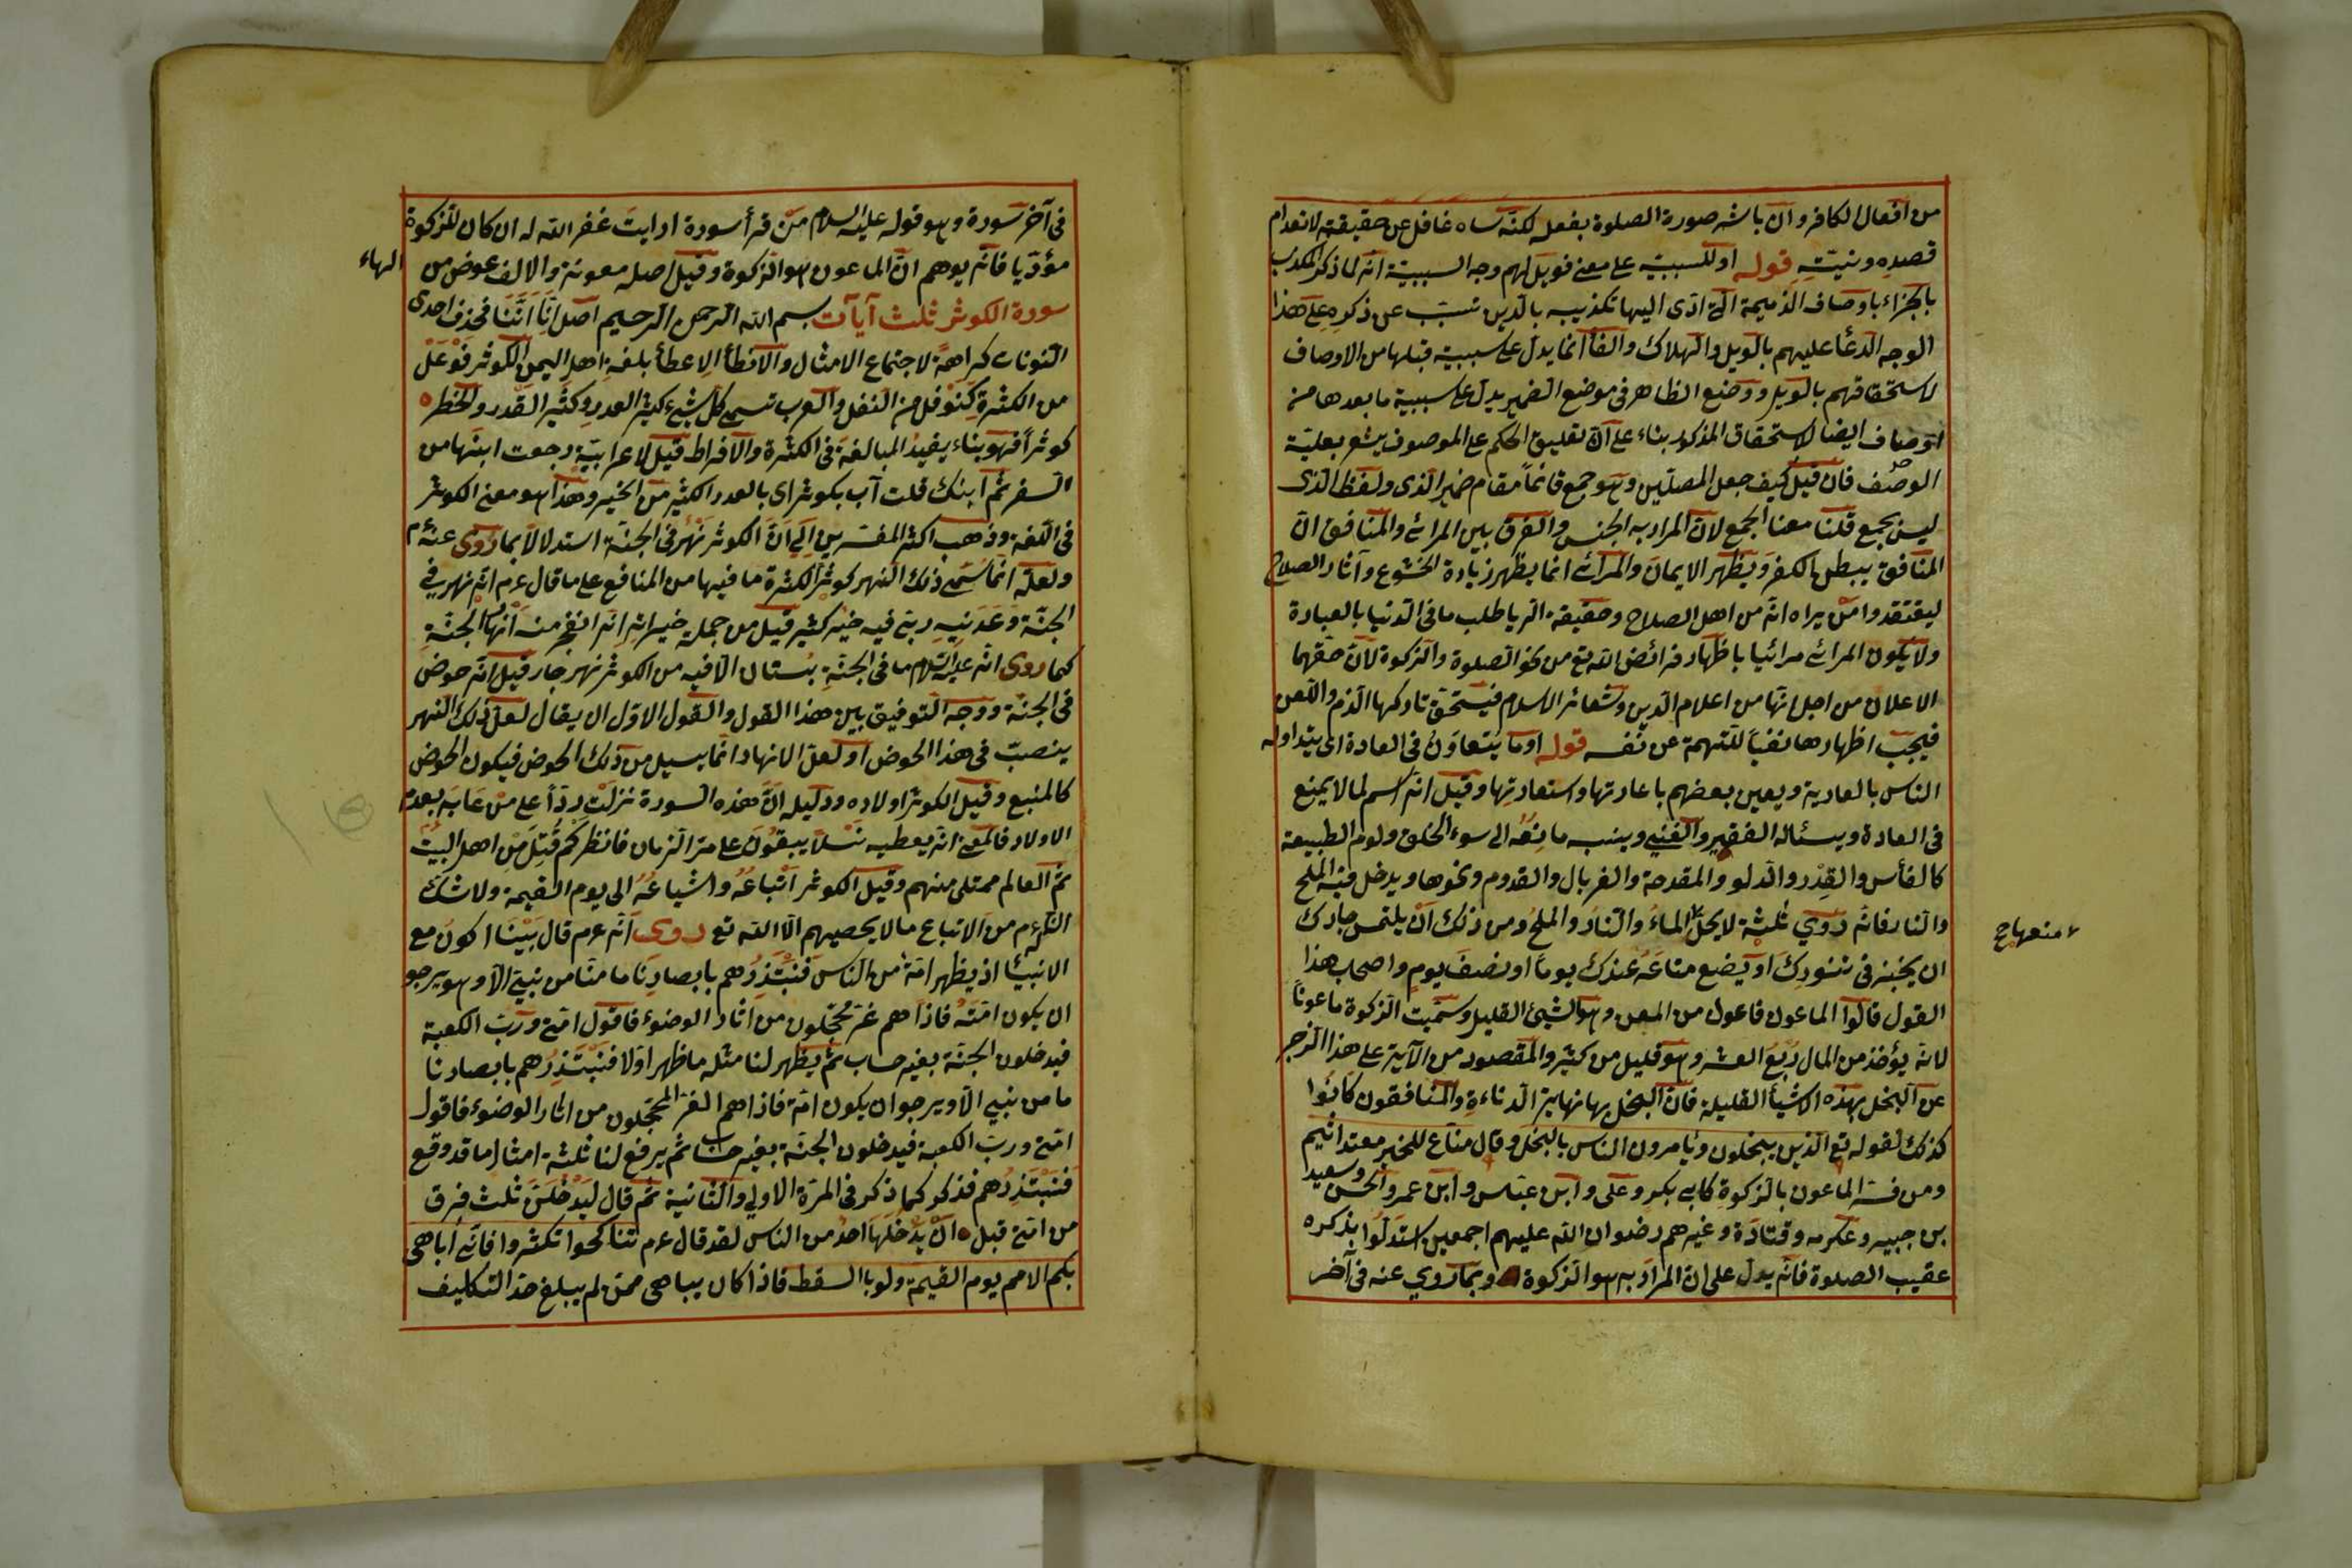 من افعال الكافر وان باشر صورة الصلوة بفعله لكنه ساه غافل عن حقيقته لانعدام
قصده ونيته قوله او للسببية على معنى فويل لهم وجه السببية انه لما ذكر المكذب
بالجزاء باوصاف الذميمة التي ادى اليها تكذيبه بالدين تسبب عن ذكره على هذا
الوجه الدعا عليهم بالويل والهلاك والفأ انما يدل على سببية قبلها من الاوصاف
لاستحقاقهم بالويل ووضع الظاهر في موضع الضمير يدل على سببية ما بعدها من
اوصاف ايضا لاستحقاق المذكور بناء على ان تعليق الحكم على الموصوف يشعر بعلية
الوصف فان قيل كيف جعل المصلين وهو جمع قائماً مقام ضمير الذى ولفظ الذى
ليس بجمع قلنا معنا الجمع لان المراد به الجنس والفرق بين المرائى والمنافق ان
المنافق يبطن الكفر ويظهر الايمان والمرائى انما يظهر زيادة الخشوع وآثار الصلاح
ليعتقد وامن يراه انه من اهل الصلاح وحقيقة الريا طلب ما في الدنيا بالعبادة
ولا يكون المرائى مرائيا باظهار فرائض الله تع من نحو الصلوة والزكوة لان حقهما
الاعلان من اجل انها من اعلام الدين وشعائر الاسلام فيستحق تاركها الذم واللعن
فيجب اظهارها نفياً للتهمة عن نفسه قوله او ما يتعاون في العادة اى يتداوله
الناس بالعارية ويعين بعضهم باعارتها واستعارتها وقيل انه اسم لما لا يمنع
في العادة ويسئاله الفقير والغني وينسب مانعه الى سوء الخلق ولوم الطبيعة
كالفأس والقدر والدلو والمقدحة والغربال والقدوم ونحوها ويدخل فيه الملح
والنار فانه روي ثلثة لا يحل الماء والنار والملح ومن ذلك ان يلتمس جارك
منعها ح
ان يخبز في تنورك او يضع متاعه عندك يوماً او نصف يوم واصحاب هذا
القول قالوا الماعون فاعول من المعن وهو الشيئ القليل وسميت الزكوة ماعوناً
لانه يؤخذ من المال ربع العشر وهو قليل من كثير والمقصود من الآية على هذا الزجر
عن البخل بهذه الاشيأ القليلة فان البخل بها نهاية الدناءة والمنافقون كانوا
كذلك لقوله تع الذين يبخلون ويامرون الناس بالبخل وقال مناع للخير معتد اثيم
ومن فسر الماعون بالزكوة كابى بكر وعلى وابن عباس وابن عمر والحسن وسعيد
بن جبير وعكرمه وقتادة وغيرهم رضوان الله عليهم اجمعين استدلوا بذكره
عقيب الصلوة فانه يدل على ان المراد به هو الزكوة وبما روي عنه في آخر
في آخر سورة وهو قوله عليه السلام من قرأ سورة ارايت غفر الله له ان كان للزكوة
مؤديا فانه يوهم ان الماعون هو الزكوة وقيل اصله معونة والالف عوض من
الهاء
سورة الكوثر ثلث آيات بسم الله الرحمن الرحيم اصل انا اننا فحذف احدى
النونات كراهةً لاجتماع الامثال والانطأ الاعطأ بلغة اهل اليمن الكوثر فوعل
من الكثرة كنوفل من النفل والعرب تسمى كل شيء كثير العدد وكثير القدر والخطر
كوثراً فهو بناء يفيد المبالغة في الكثرة والافراط قيل لاعرابية رجعت ابنها من
السفر ثم آب ابنك قلت آب بكوثر اى بالعدد الكثير من الخير وهذا هو معنى الكوثر
في اللغة وذهب اكثر المفسرين الى ان الكوثر نهر في الجنة استدلالاً بما روى عنه م
ولعله انما سمى ذلك النهر كوثراً لكثرة ما فيها من المنافع على ما قال ءم انه نهر في
الجنة وعدنيه ربى فيه خير كثير قيل من جملة خيراته انه انفجر منه انهار الجنة
كما روى انه عليه السلام ما في الجنة بستان الا فيه من الكوثر نهر جار قيل انه حوض
في الجنة ووجه التوفيق بين هذا القول والقول الاول ان يقال لعل ذلك النهر
ينصب في هذا الحوض او لعل الانهار انما يسيل من ذلك الحوض فيكون الحوض
كالمنبع وقيل الكوثر اولاده ودليله ان هذه السورة نزلت رداً على من عابه بعدم
الاولاد فالمعنى انه يعطيه نسلاً يبقون على مر الزمان فانظر كم قتل من اهل البيت
ثم العالم ممتلى منهم وقيل الكوثر اتباعه واشياعه الى يوم القيمة ولا شك
من الاتباع ما لا يحصيهم الا الله تع روى انه ءم قال بينا اكون مع
الانبيأ اذ يظهر امة من الناس فنبتدرهم بابصارنا ما منا من نبي الا وهو يرجو
ان يكون امته فاذا هم غر محجلون من اثار الوضوء فاقول امتي ورب الكعبة
فيدخلون الجنة بغير حساب ثم يظهر لنا مثله ما ظهر اولا فنبتدرهم بابصارنا
ما من نبي الا ويرجو ان يكون امة فاذا هم الغر المحجلون من اثار الوضوء فاقول
امتي ورب الكعبة فيدخلون الجنة بغير حساب ثم يرفع لنا ثلثة امثال ما قد وقع
فنبتدرهم فذكر كما ذكر في المرة الاولى والثانية ثم قال ليدخلن ثلث فرق
من امتي قبل ان يدخلها احد من الناس لقد قال ءم تناكحوا تكثروا فاني اباهى
بكم الامم يوم القيمة ولو بالسقط فاذا كان يباهى ممن لم يبلغ حد التكليف